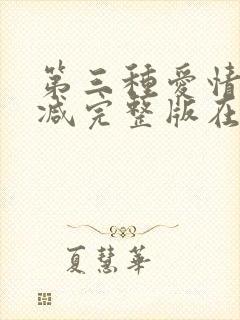 第三種愛情
减完整版在
夏慧華